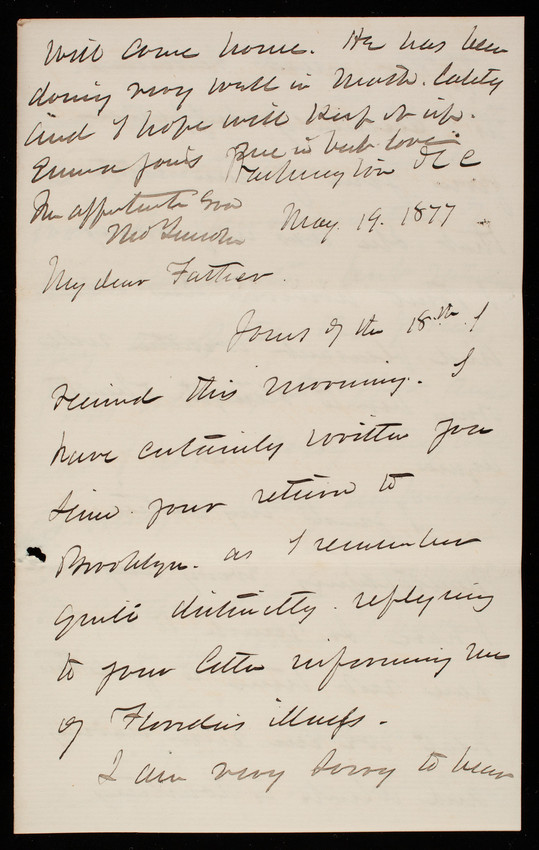 Will come home. He has been
doing very well in Math. lately
and I hope will keep it up.
Emma joins me in best love.
Washington D C
Yr affectionate Son
Thos Lincoln
May 19. 1877
My dear Father.
Yours of the 18th I
received this morning. I
have certainly written you
since your return to
Brooklyn. as I remember
quite distinctly replying
to your letter informing me
of Florides illness.
I am very sorry to hear